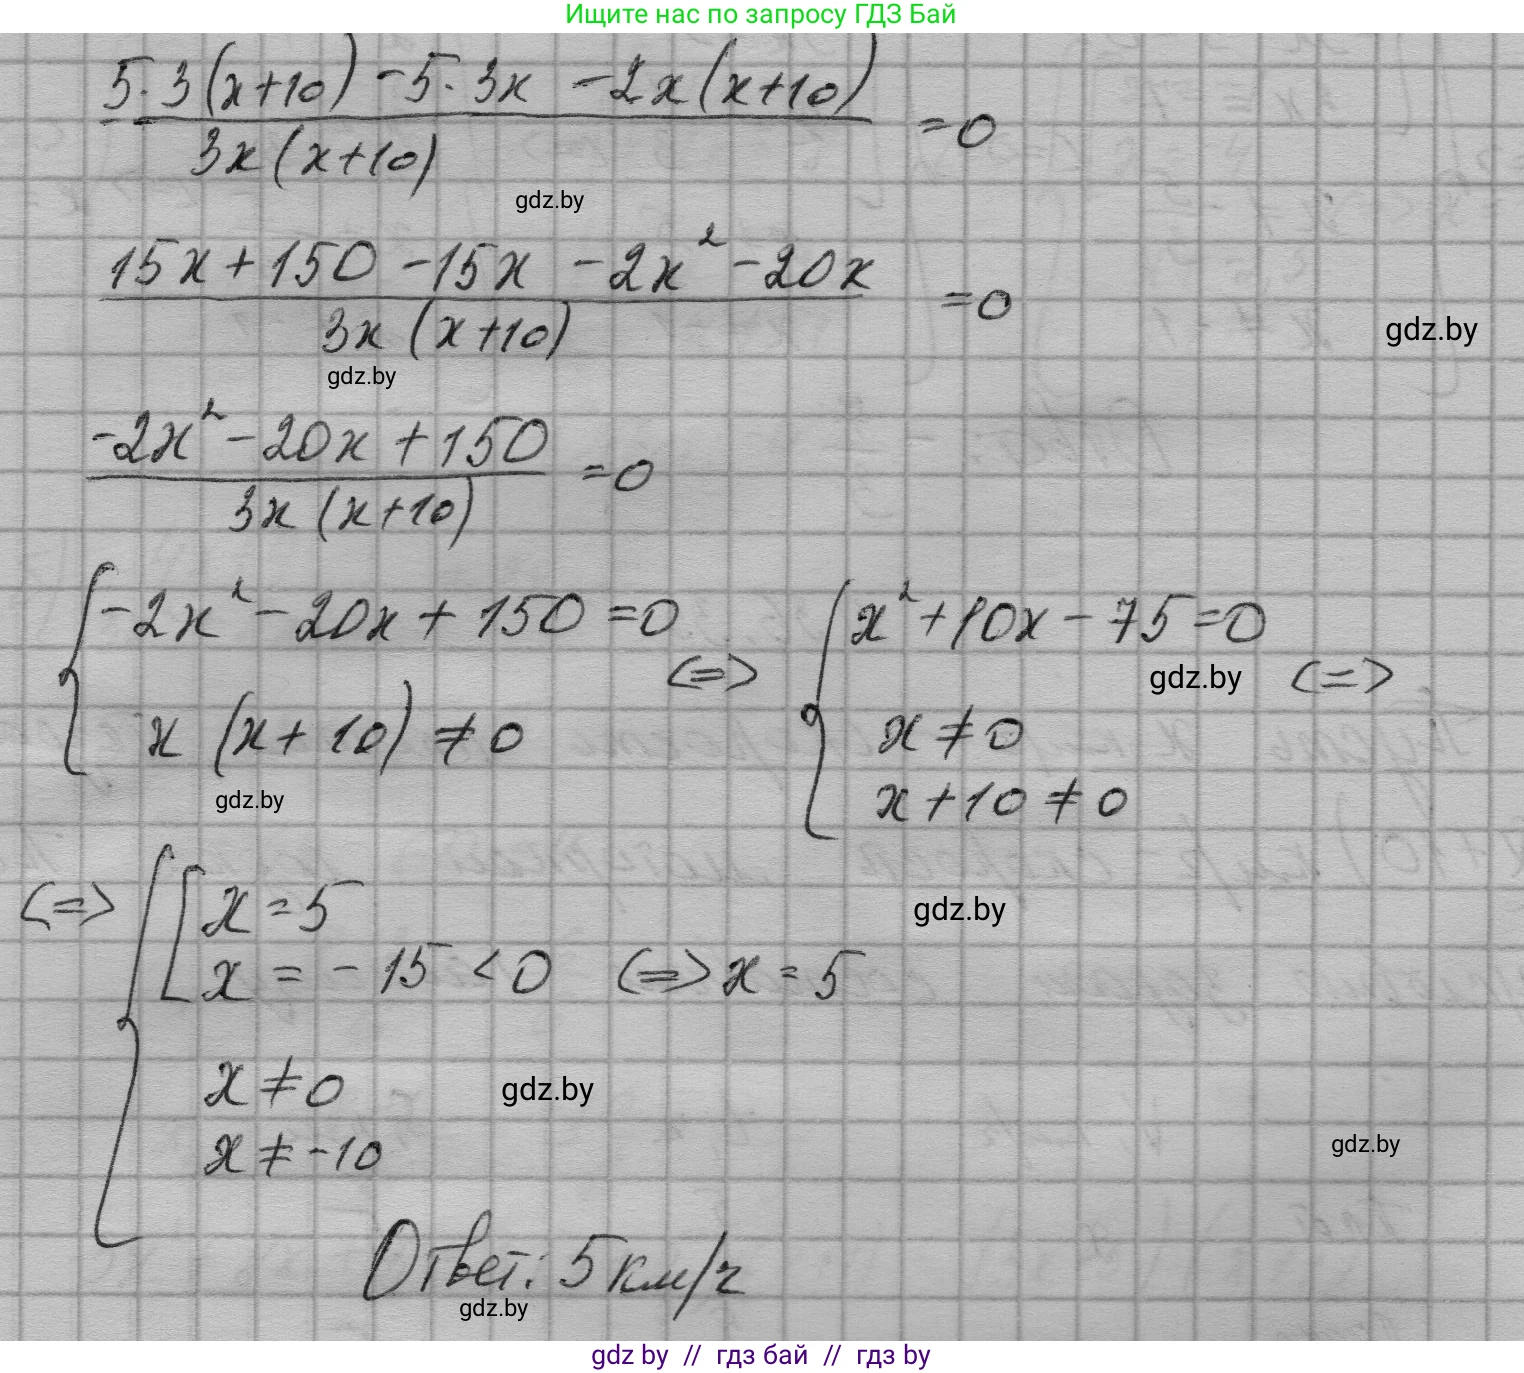 Ищите нас по запросу ГДЗ Бай
5·3(x+10) -5·3x -2x(x+10)
=0
3x(x+10)
gdz.by
15x+150 -15x -2x² -20x
=0
3x(x+10)
gdz.by
gdz.by
-2x² -20x +150
=0
3x(x+10)
-2x² -20x +150 =0
x(x+10) ≠0
(=>
x² +10x -75=0
gdz.by
(=>
x≠0
x+10≠0
gdz.by
(=>
x=5
x = -15 <0 (=> x=5
gdz.by
x≠0
gdz.by
x≠-10
gdz.by
Ответ: 5 км/ч
gdz.by
gdz by // гдз бай // гдз by